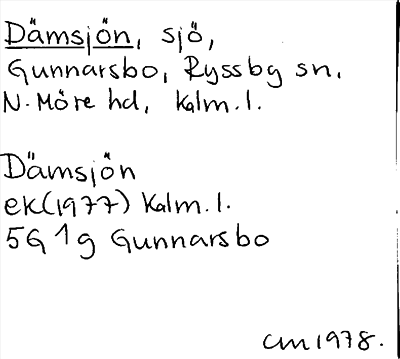 Dämsjön, sjö,
Gunnarsbo, Ryssby sn.
N. Möre hd, Kalm. l.
Dämsjön
ek(1977) Kalm. l.
5G 1g Gunnarsbo
CM 1978.